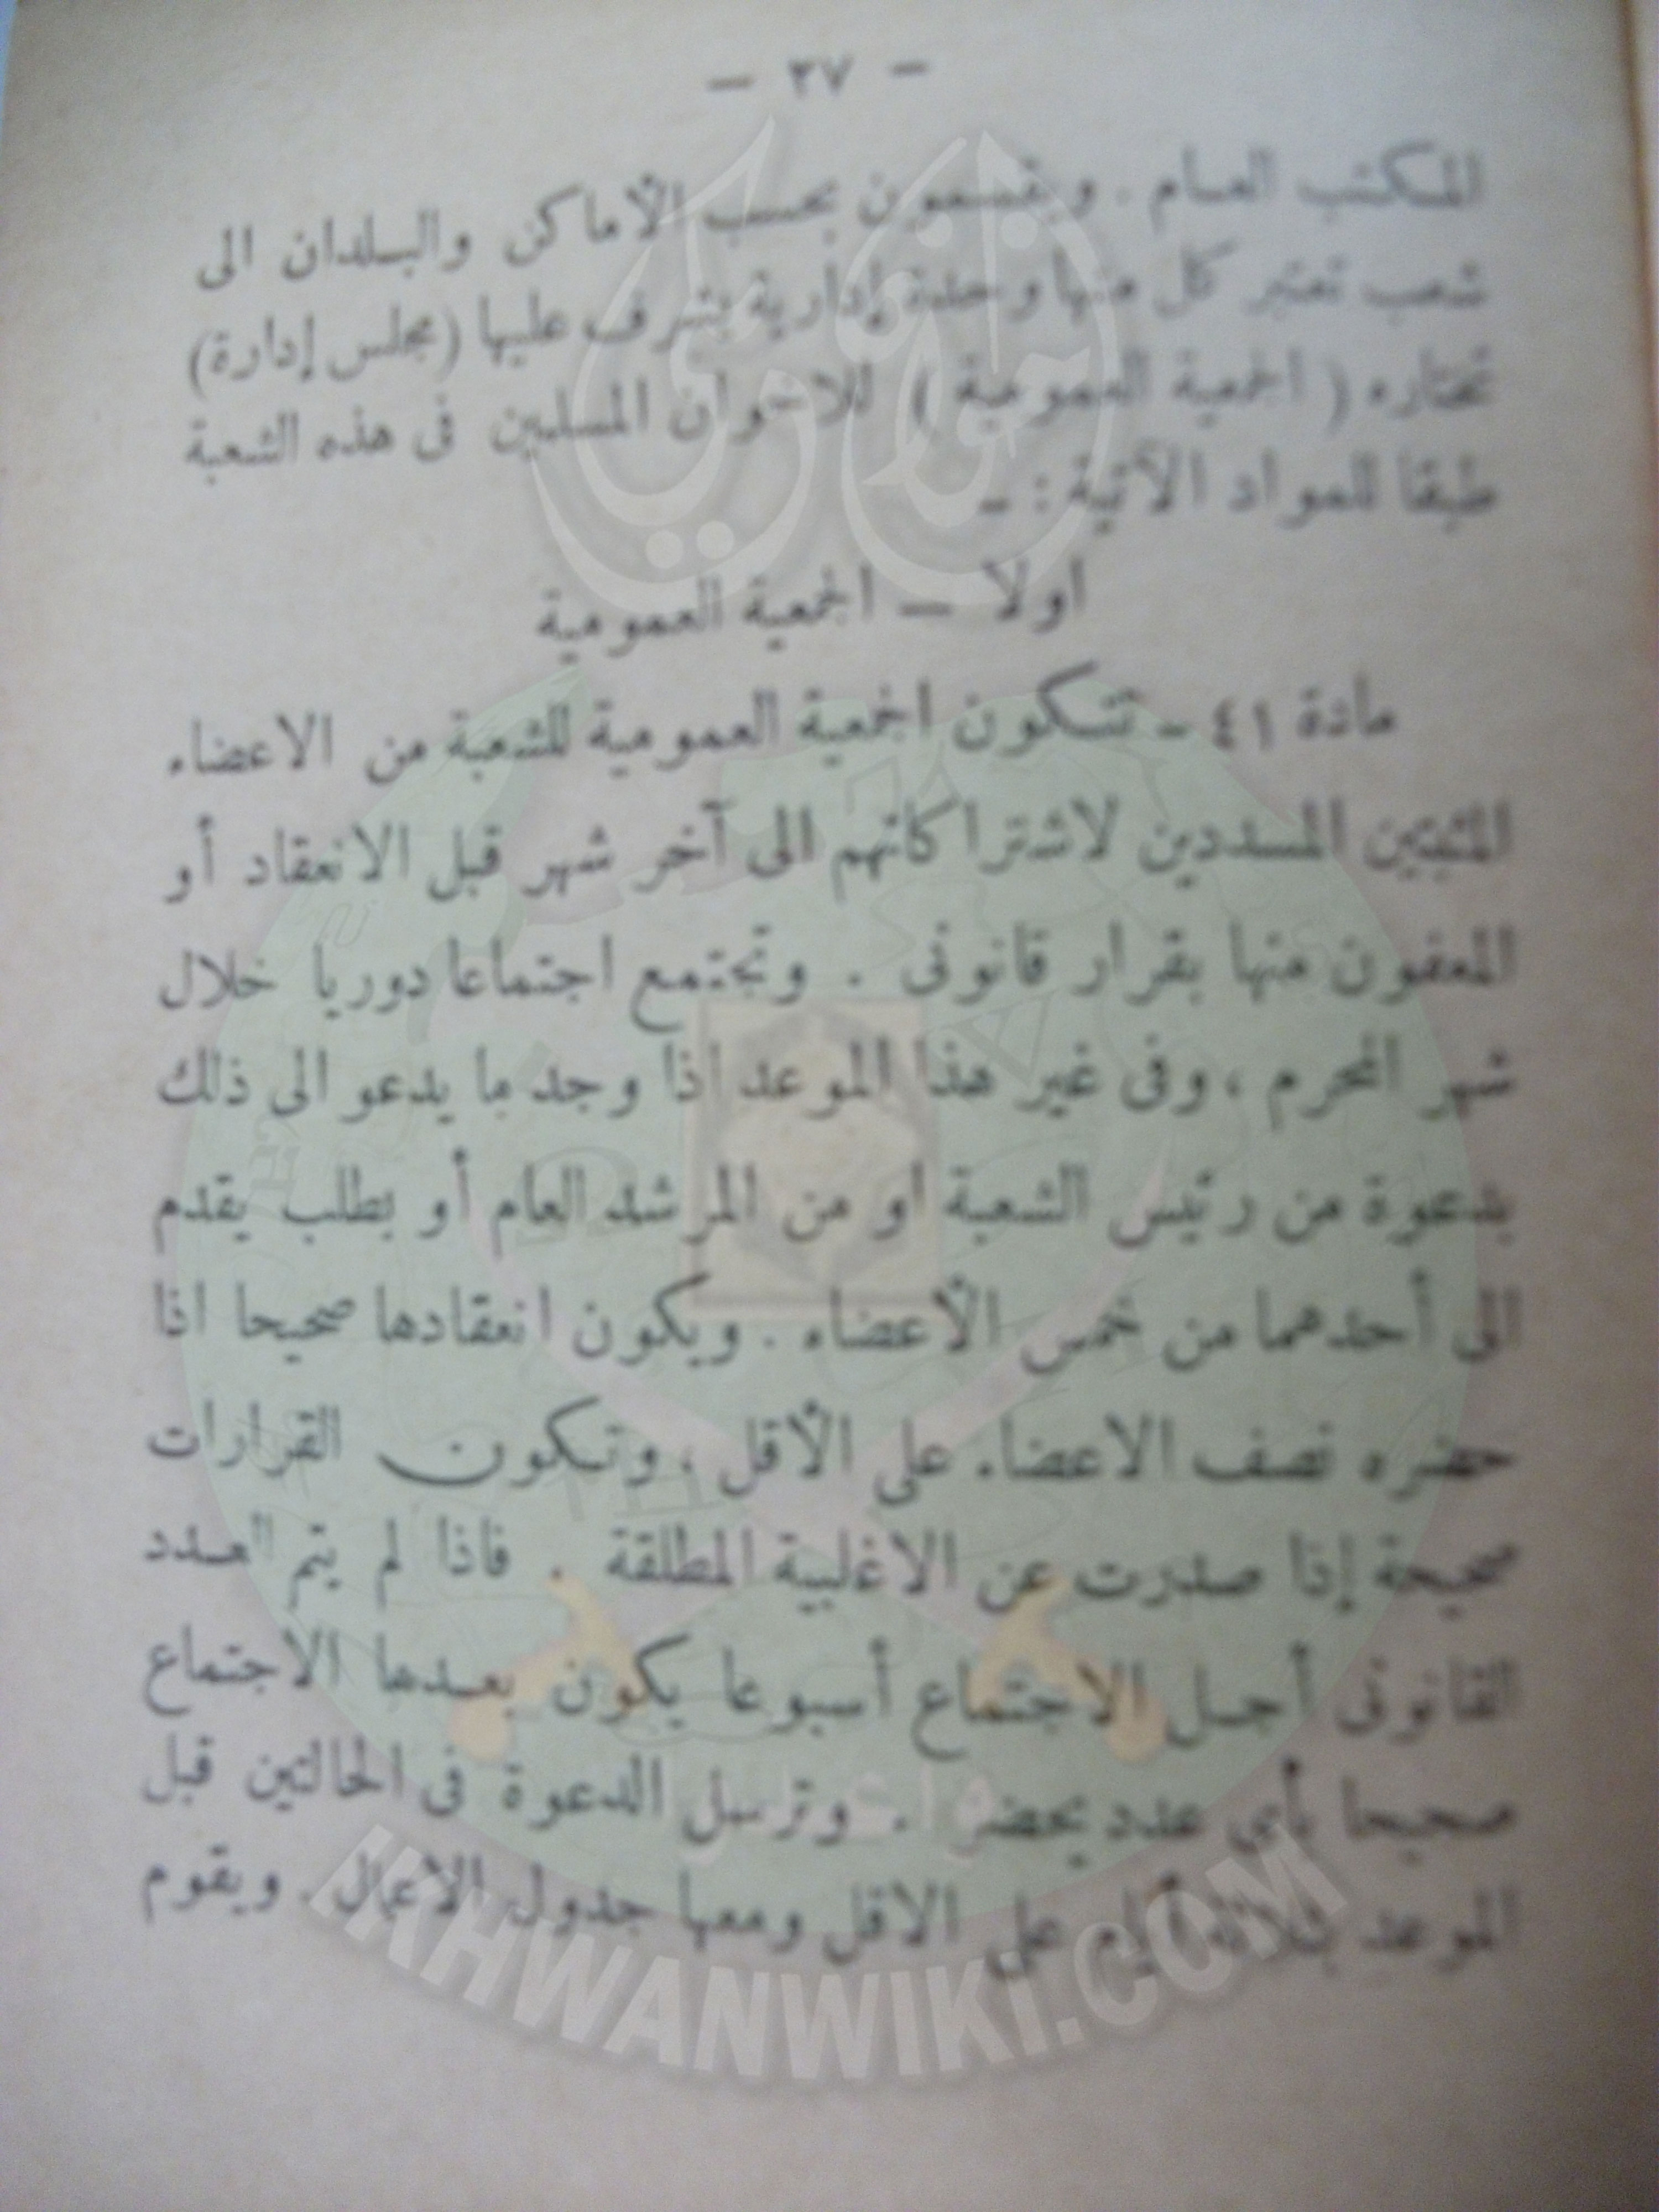 - ٢٧ -
المكتب العام . ويقسمون بحسب الأماكن والبلدان الى
شعب تعتبر كل منها وحدة إدارية يشرف عليها (مجلس إدارة)
تختاره ( الجمعية العمومية ) للاخوان المسلمين فى هذه الشعبة
طبقا للمواد الآتية : -
اولا — الجمعية العمومية
مادة ٤١ - تتكون الجمعية العمومية للشعبة من الاعضاء
المثبتين المسددين لاشتراكاتهم الى آخر شهر قبل الانعقاد أو
المعفون منها بقرار قانونى . وتجتمع اجتماعا دوريا خلال
شهر المحرم ، وفى غير هذا الموعد اذا وجد ما يدعو الى ذلك
بدعوة من رئيس الشعبة او من المرشد العام أو بطلب يقدم
الى أحدهما من خمس الأعضاء . ويكون انعقادها صحيحا اذا
حضره نصف الاعضاء على الأقل ، وتكون القرارات
صحيحة إذا صدرت عن الاغلبية المطلقة . فاذا لم يتم العدد
القانونى أجل الاجتماع أسبوعا يكون بعدها الاجتماع
صحيحا بأى عدد يحضر . وترسل الدعوة فى الحالتين قبل
الموعد بثلاثة أيام على الاقل ومعها جدول الاعمال . ويقوم
إخوان ويكي
IKHWANWIKI.COM